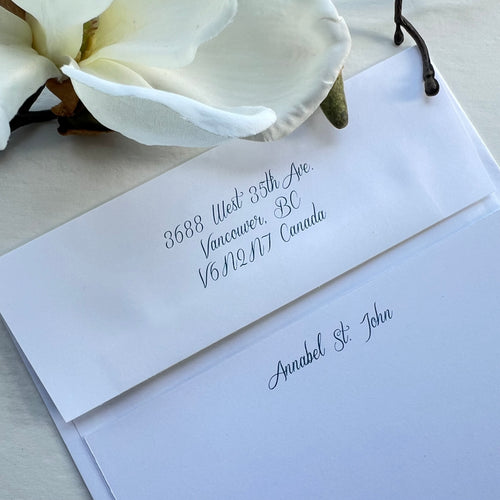 3688 West 35th Ave.
Vancouver, BC
V6N2N7 Canada
Annabel St. John